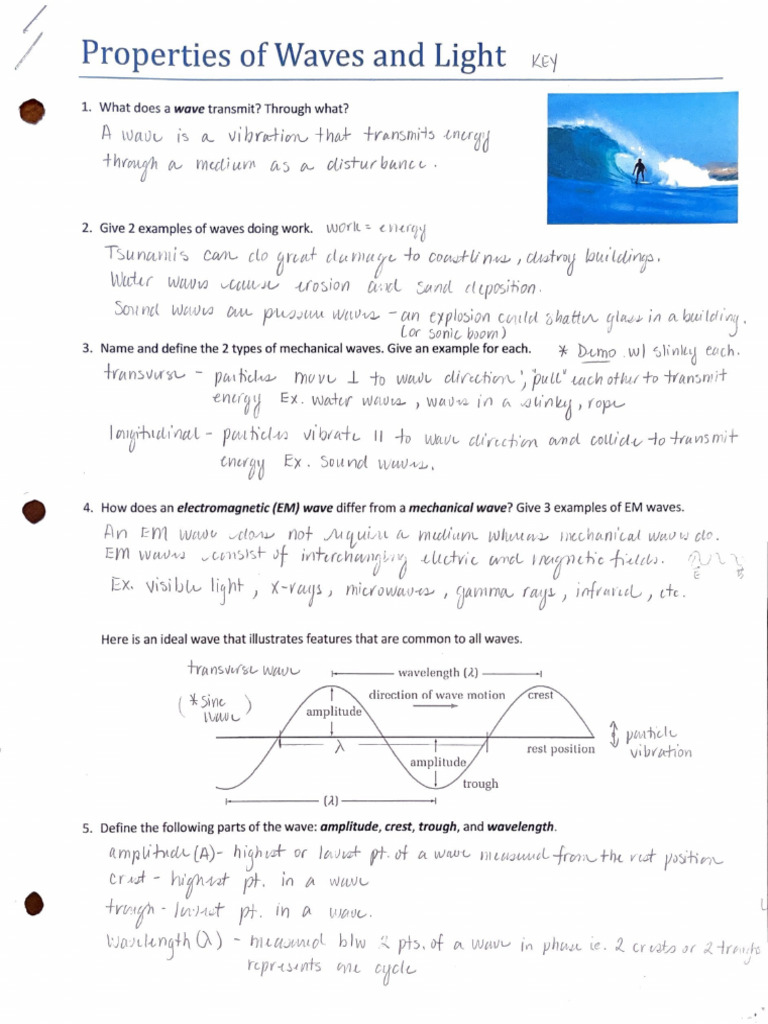 Properties of Waves and Light KEY
1. What does a wave transmit? Through what?
A wave is a vibration that transmits energy
through a medium as a disturbance.
2. Give 2 examples of waves doing work. work = energy
Tsunamis can do great damage to coastlines, destroy buildings.
Water waves cause erosion and sand deposition.
Sound waves are pressure waves - an explosion could shatter glass in a building.
(or sonic boom)
3. Name and define the 2 types of mechanical waves. Give an example for each. * Demo w/ slinky each.
transverse - particles move ⊥ to wave direction; "pull" each other to transmit
energy Ex. water waves, waves in a slinky, rope
longitudinal - particles vibrate || to wave direction and collide to transmit
energy Ex. Sound waves.
4. How does an electromagnetic (EM) wave differ from a mechanical wave? Give 3 examples of EM waves.
An EM wave does not require a medium whereas mechanical waves do.
EM waves consist of interchanging electric and magnetic fields.
E B
Ex. visible light, x-rays, microwaves, gamma rays, infrared, etc.
Here is an ideal wave that illustrates features that are common to all waves.
transverse wave
wavelength (λ)
(* Sine wave)
direction of wave motion
crest
amplitude
particle vibration
λ
rest position
amplitude
trough
(λ)
5. Define the following parts of the wave: amplitude, crest, trough, and wavelength.
amplitude (A) - highest or lowest pt. of a wave measured from the rest position
crest - highest pt. in a wave
trough - lowest pt. in a wave.
Wavelength (λ) - measured b/w 2 pts. of a wave in phase ie. 2 crests or 2 troughs
represents one cycle